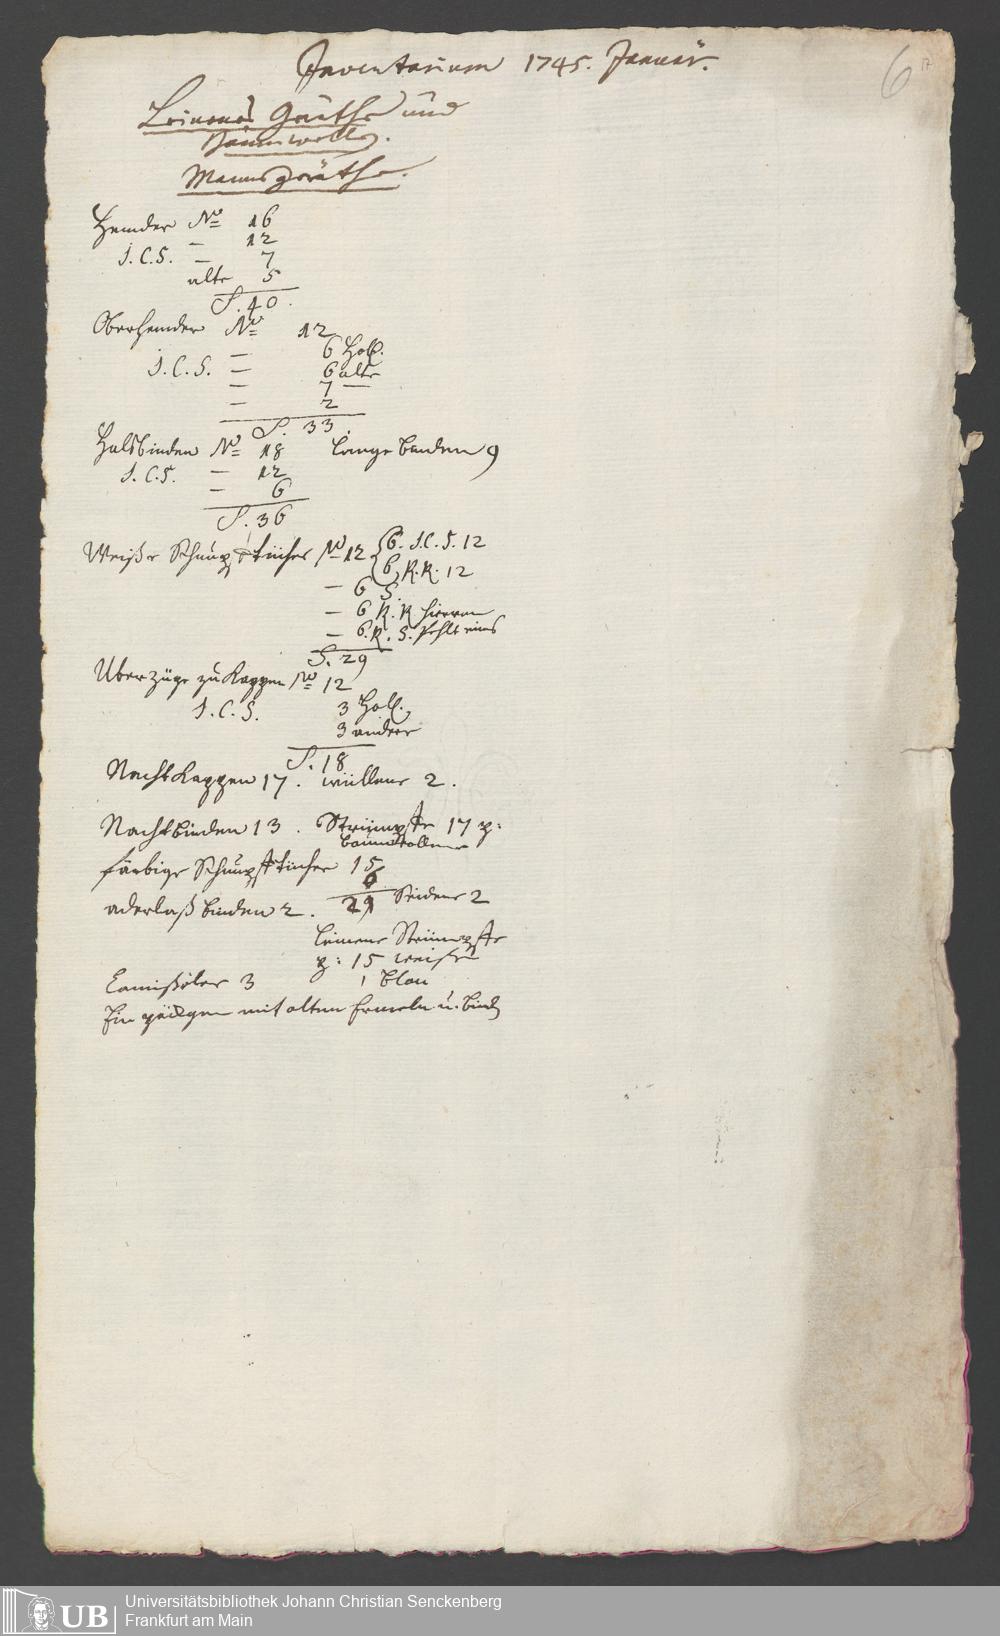 Inventarium 1745. Januar.
6
17
Leinenes Gräthe und
Baumwollen.
Mannsgeräthe.
Hemder No 16
— 12
J.C.S. — 7
alte 5
S. 40.
Oberhemder No 12
— 6 Holl.
J.C.S. — 6 alte
— 7 —
— 2
S. 33.
Halsbinden No 18 lange binden 9
J.C.S. — 12
— 6
S. 36
Weiße Schnupftücher No 12 {6. J.C.S. 12
6 R.R. 12
— 6 S.
— 6 R.R. hiervon
— 6. R.S. fehlt eins
S. 29
Uberzüge zu Kappen No 12
J.C.S. 3 Holl.
3 andere
S. 18
Nachtkappen 17. wüllene 2.
Nachtbinden 13. Strümpffe 17 p:
baumwollene
färbige Schnupftücher 15
29 Seidene 2
aderlaß binden 2.
leinene Strümpffe
p: 15 weiße
Camißöler 3 1 blau
Ein mit alten Ermeln u.
UB
Universitätsbibliothek Johann Christian Senckenberg
Frankfurt am Main